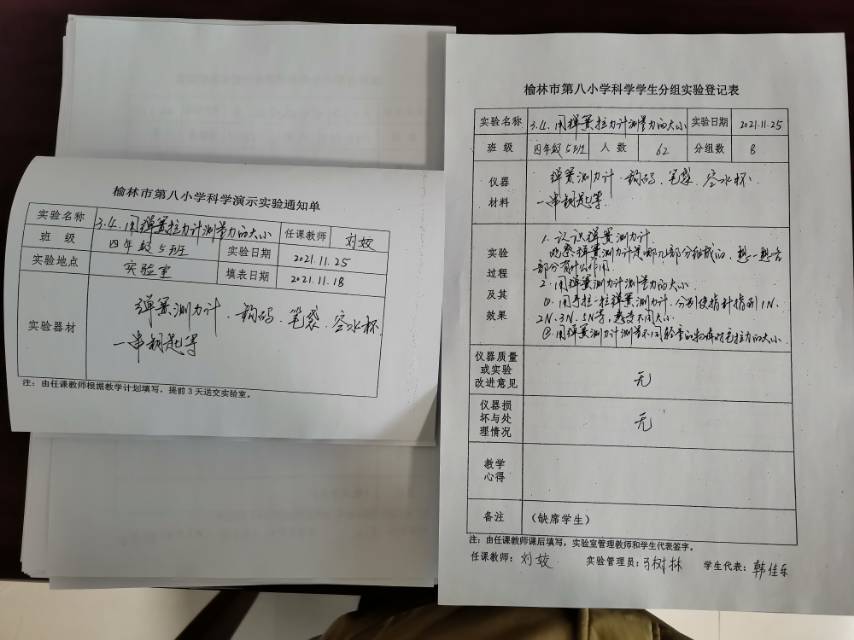 榆林市第八小学科学演示实验通知单
实验名称 3.4.用弹簧拉力计测量力的大小 任课教师 刘姣
班级 四年级5班 实验日期 2021.11.25
实验地点 实验室 填表日期 2021.11.18
实验器材 弹簧测力计、钩码、笔袋、空水杯、
一串钥匙等
注:由任课教师根据教学计划填写,提前3天送交实验室。
榆林市第八小学科学学生分组实验登记表
实验名称 3.4.用弹簧拉力计测量力的大小 实验日期 2021.11.25
班级 四年级5班 人数 62 分组数 8
仪器材料 弹簧测力计、钩码、笔袋、空水杯、
一串钥匙等
实验过程及其效果 1.认识弹簧测力计
观察弹簧测力计是哪几部分组成的,想一想各
部分有什么作用
2.用弹簧测力计测量力的大小
①用手拉一拉弹簧测力计,分别使指针指到1N、
2N、3N、5N等,感受不同大小
②用弹簧测力计测量不同轻重的物体
仪器质量或实验改进意见 无
仪器损坏与处理情况 无
教学心得
备注 (缺席学生)
注:由任课教师课后填写,实验室管理教师和学生代表签字。
任课教师:刘姣 实验管理员: 树林 学生代表:韩佳乐